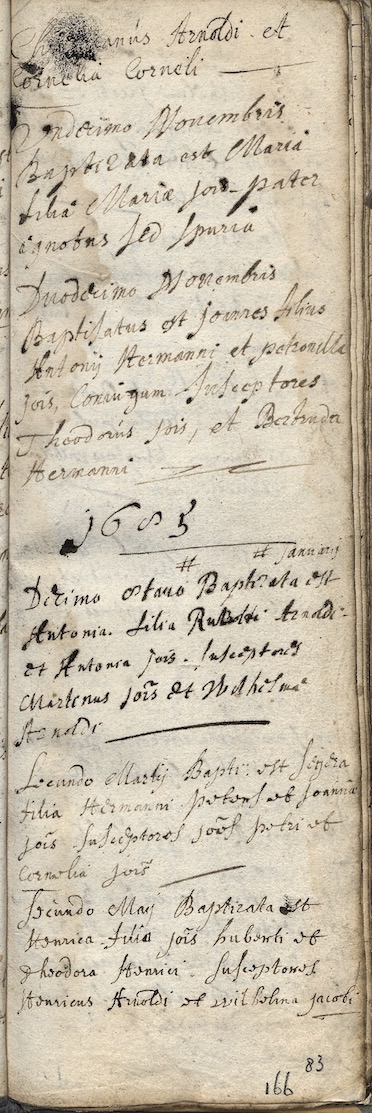 Arnoldi et
Cornelia Corneli
Undecimo Novembris
Baptizata est Maria
filia Mariæ Jois pater
ignotus sed spuria
Duodecimo Novembris
Baptisatus est Joannes filius
Antonij Hermanni et petronilla
Jois, Coniugum Susceptores
Theodorus Jois, et Bertruda
Hermanni
1685
# # Januarij
Decimo octavo Baptizata est
Antonia. filia Arnoldi
et Antonia Jois. Susceptores
Martinus Jois et Wilhelma
Arnoldi
Secundo Martij Bapti: est
filia Hermanni peters et Joanna
Jois Susceptores Jois petri et
Cornelia Jois
Secundo Maij Baptizata est
Henrica filia Jois huberti et
Theodora Henrici. Susceptores
Henricus Arnoldi et wilhelma Jacobi
83
166